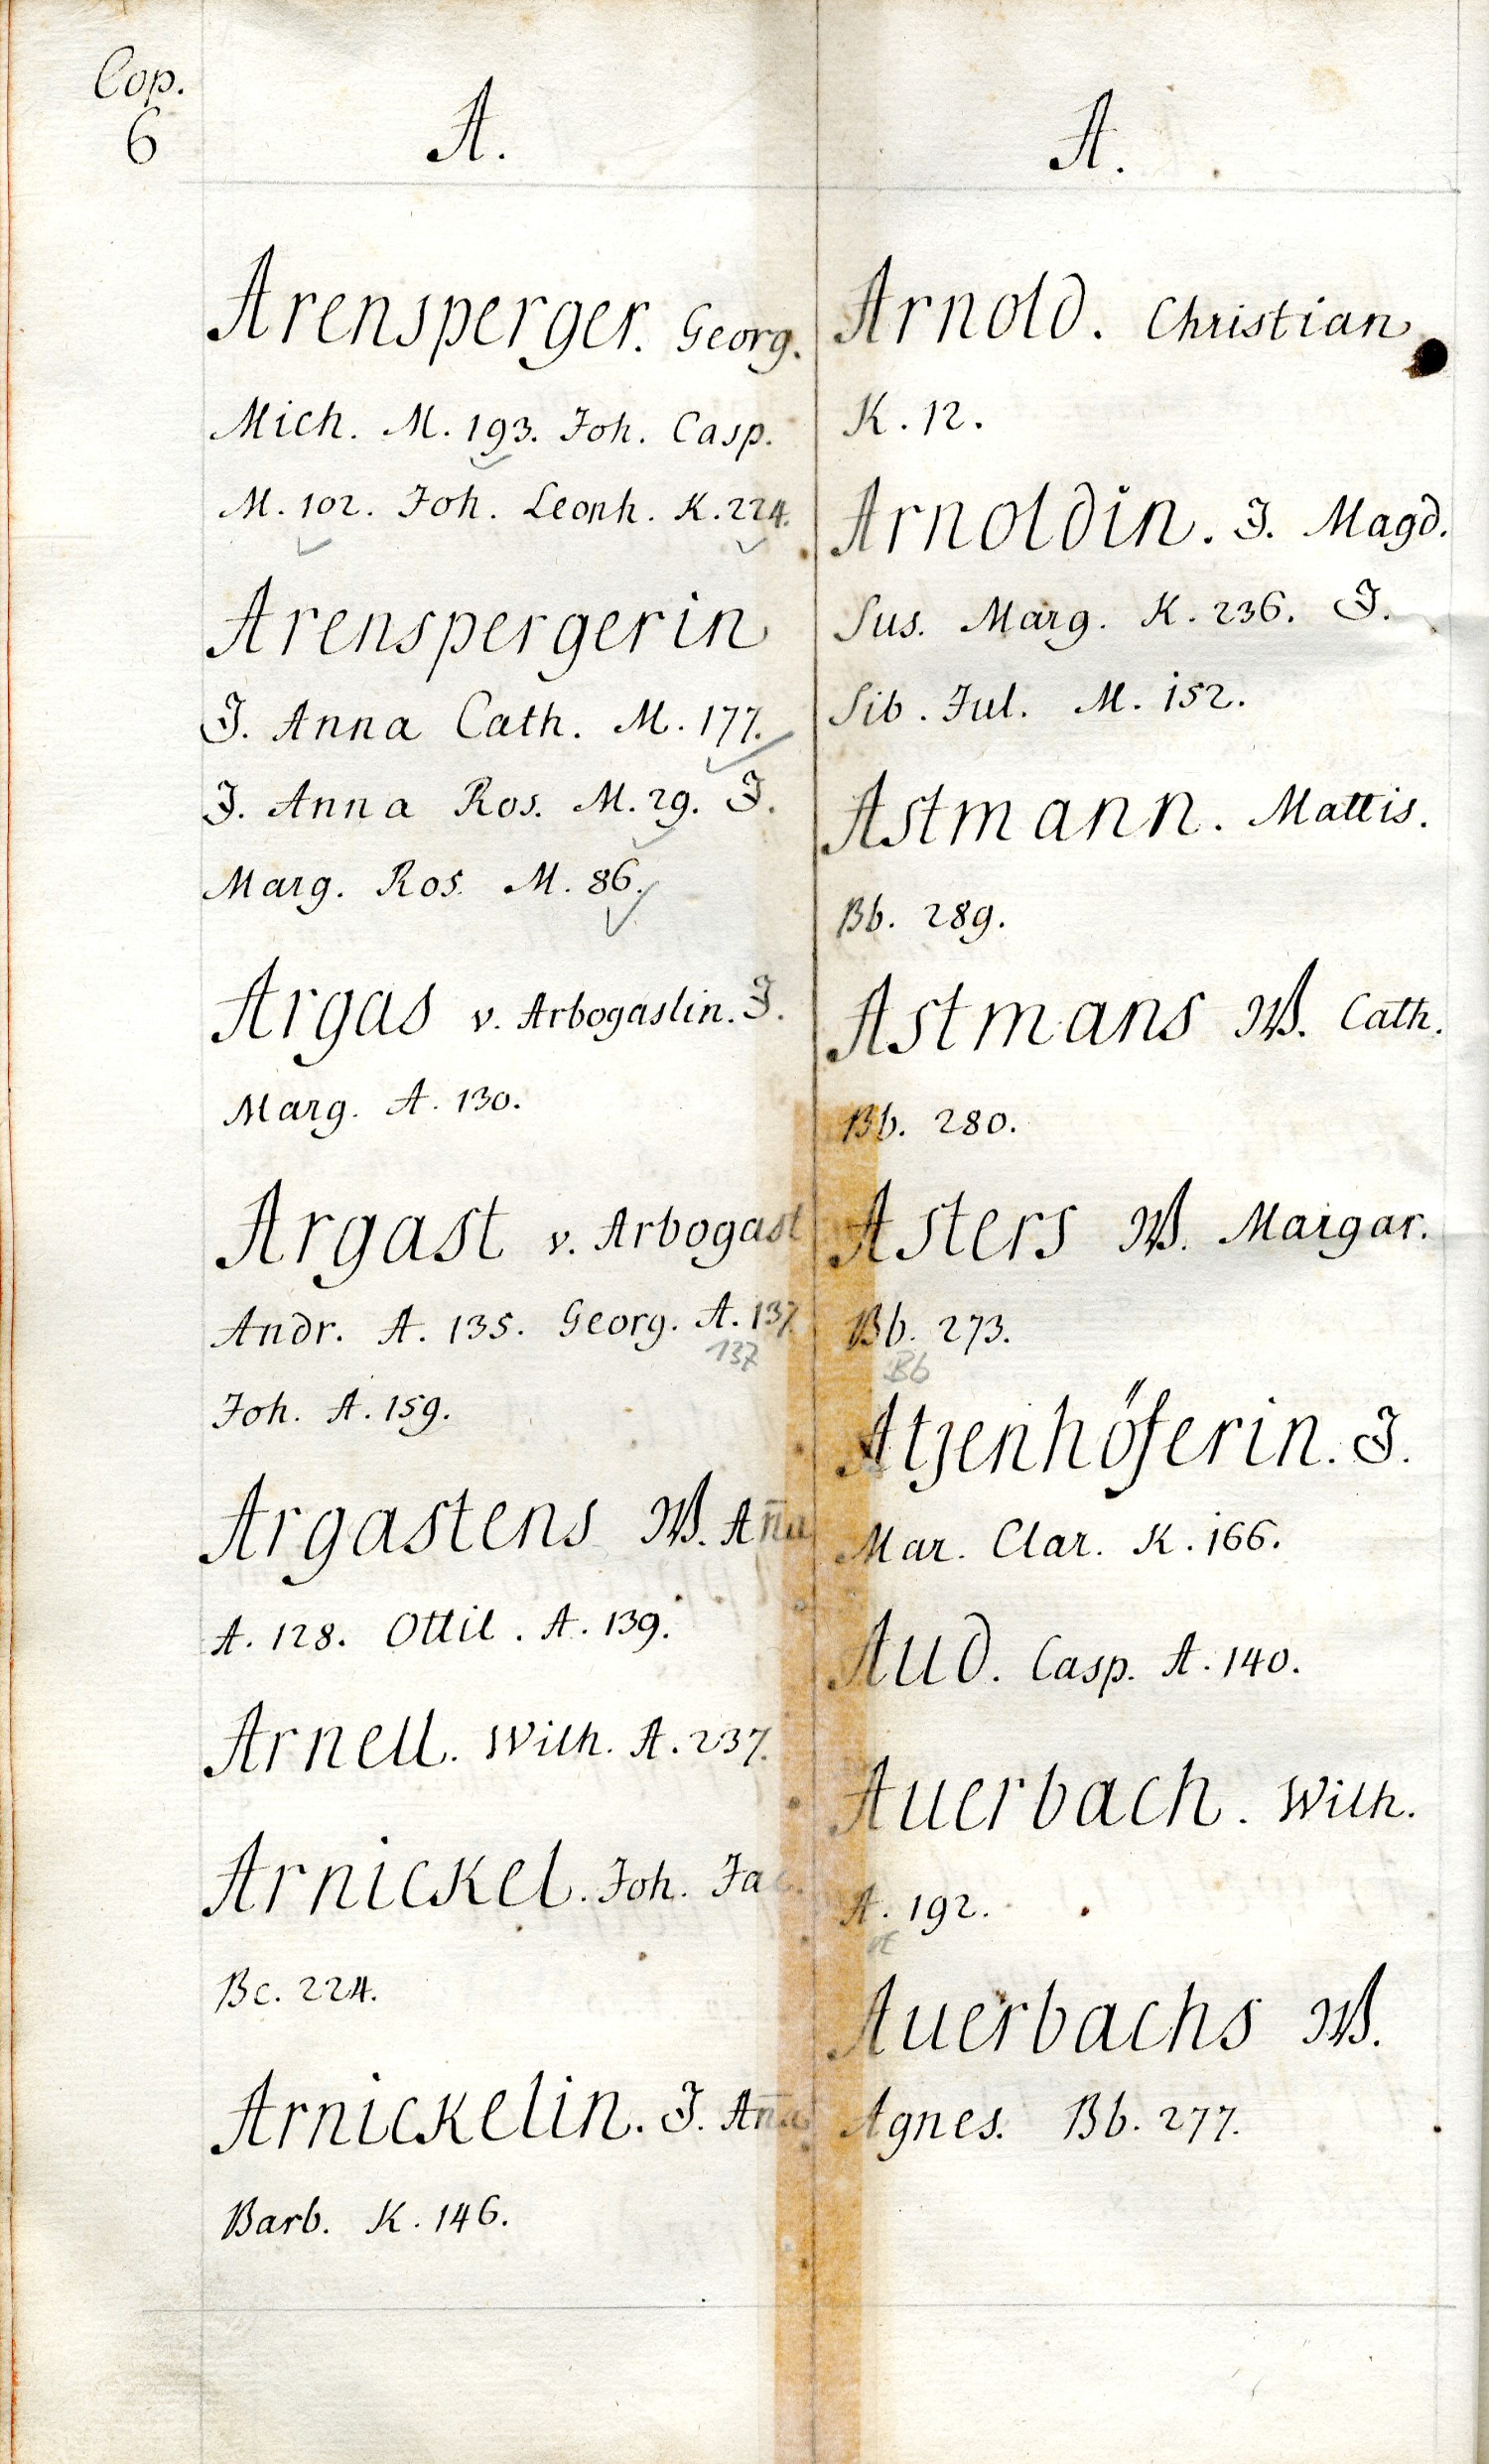 Cop.
6
A.
Arensperger. Georg.
Mich. M. 193. Joh. Casp.
M. 102. Joh. Leonh. K. 224.
Arenspergerin
J. Anna Cath. M. 177.
J. Anna Ros. M. 29. J.
Marg. Ros. M. 86.
Argas v. Arbogastin. J.
Marg. A. 130.
Argast v. Arbogast
Andr. A. 135. Georg. A. 137.
137
Joh. A. 159.
Argastens W. Ana̅
A. 128. Ottil. A. 139.
Arnell. Wilh. A. 237.
Arnickel. Joh. Jac.
Bc. 224.
Arnickelin. J. An̅a
Barb. K. 146.
A.
Arnold. Christian
K. 12.
Arnoldin. J. Magd.
Sus. Marg. K. 236. J.
Sib. Jul. M. 152.
Astmann. Mattis.
Bb. 289.
Astmans W. Cath.
Bb. 280.
Asters W. Margar.
Bb. 273.
Bb
Atzenhöferin. J.
Mar. Clar. K. 166.
Aud. Casp. A. 140.
Auerbach. Wilh.
A. 192.
Auerbachs W.
Agnes. Bb. 277.